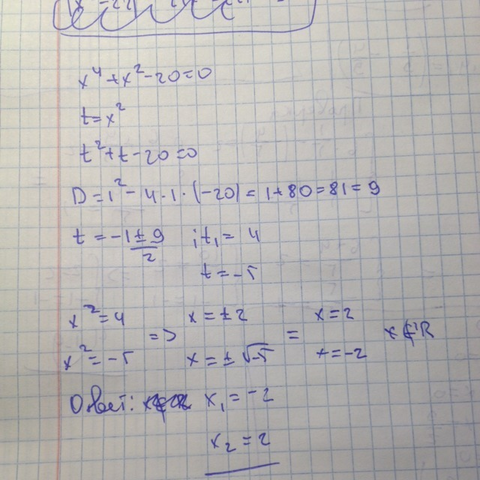 x⁴+x²-20=0
t=x²
t²+t-20=0
D=1²-4·1·(-20)=1+80=81=9
t=-1±9/2 ; t₁=4
t=-5
x²=4 => x=±2 = x=2 x∉R
x²=-5 x=±√-5 x=-2
Ответ: x₁=-2
x₂=2